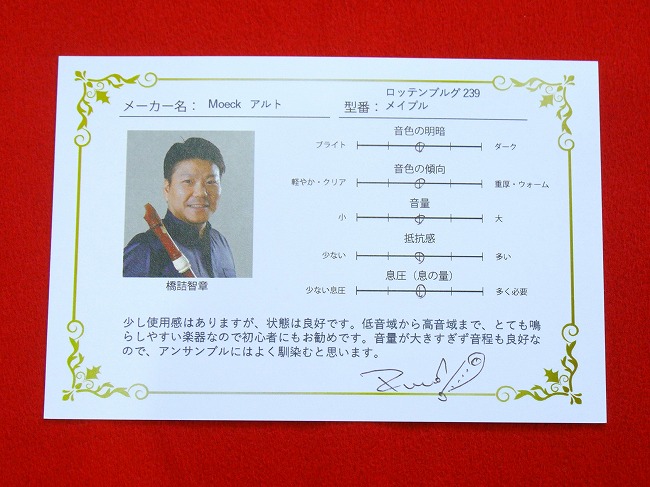 ロッテンブルグ 239
メーカー名： Moeck アルト 型番： メイプル
音色の明暗
ブライト ダーク
音色の傾向
軽やか・クリア 重厚・ウォーム
音量
小 大
抵抗感
少ない 多い
息圧（息の量）
少ない息圧 多く必要
橋詰智章
少し使用感はありますが、状態は良好です。低音域から高音域まで、とても鳴
らしやすい楽器なので初心者にもお勧めです。音量が大きすぎず音程も良好な
ので、アンサンブルにはよく馴染むと思います。